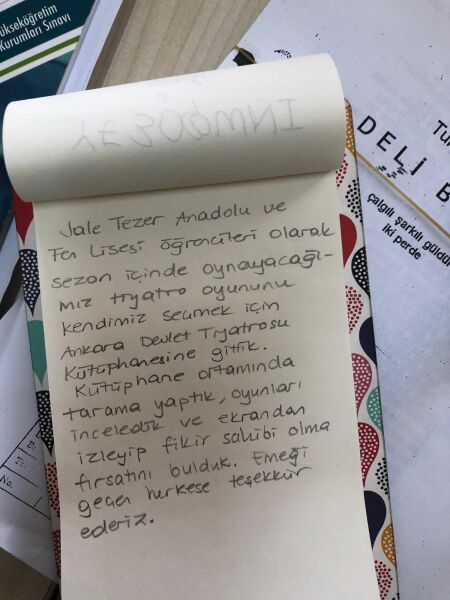 ükseköğretim
Kurumları Sınavı
Tu
DELİ B
çalgılı şarkılı güldü
iki perde
Jale Tezer Anadolu ve
Fen Lisesi öğrencileri olarak
sezon içinde oynayacağı-
mız tiyatro oyununu
kendimiz seçmek için
Ankara Devlet Tiyatrosu
Kütüphanesine gittik.
Kütüphane ortamında
tarama yaptık, oyunları
inceledik ve ekrandan
izleyip fikir sahibi olma
fırsatını bulduk. Emeği
geçen herkese teşekkür
ederiz.
No.